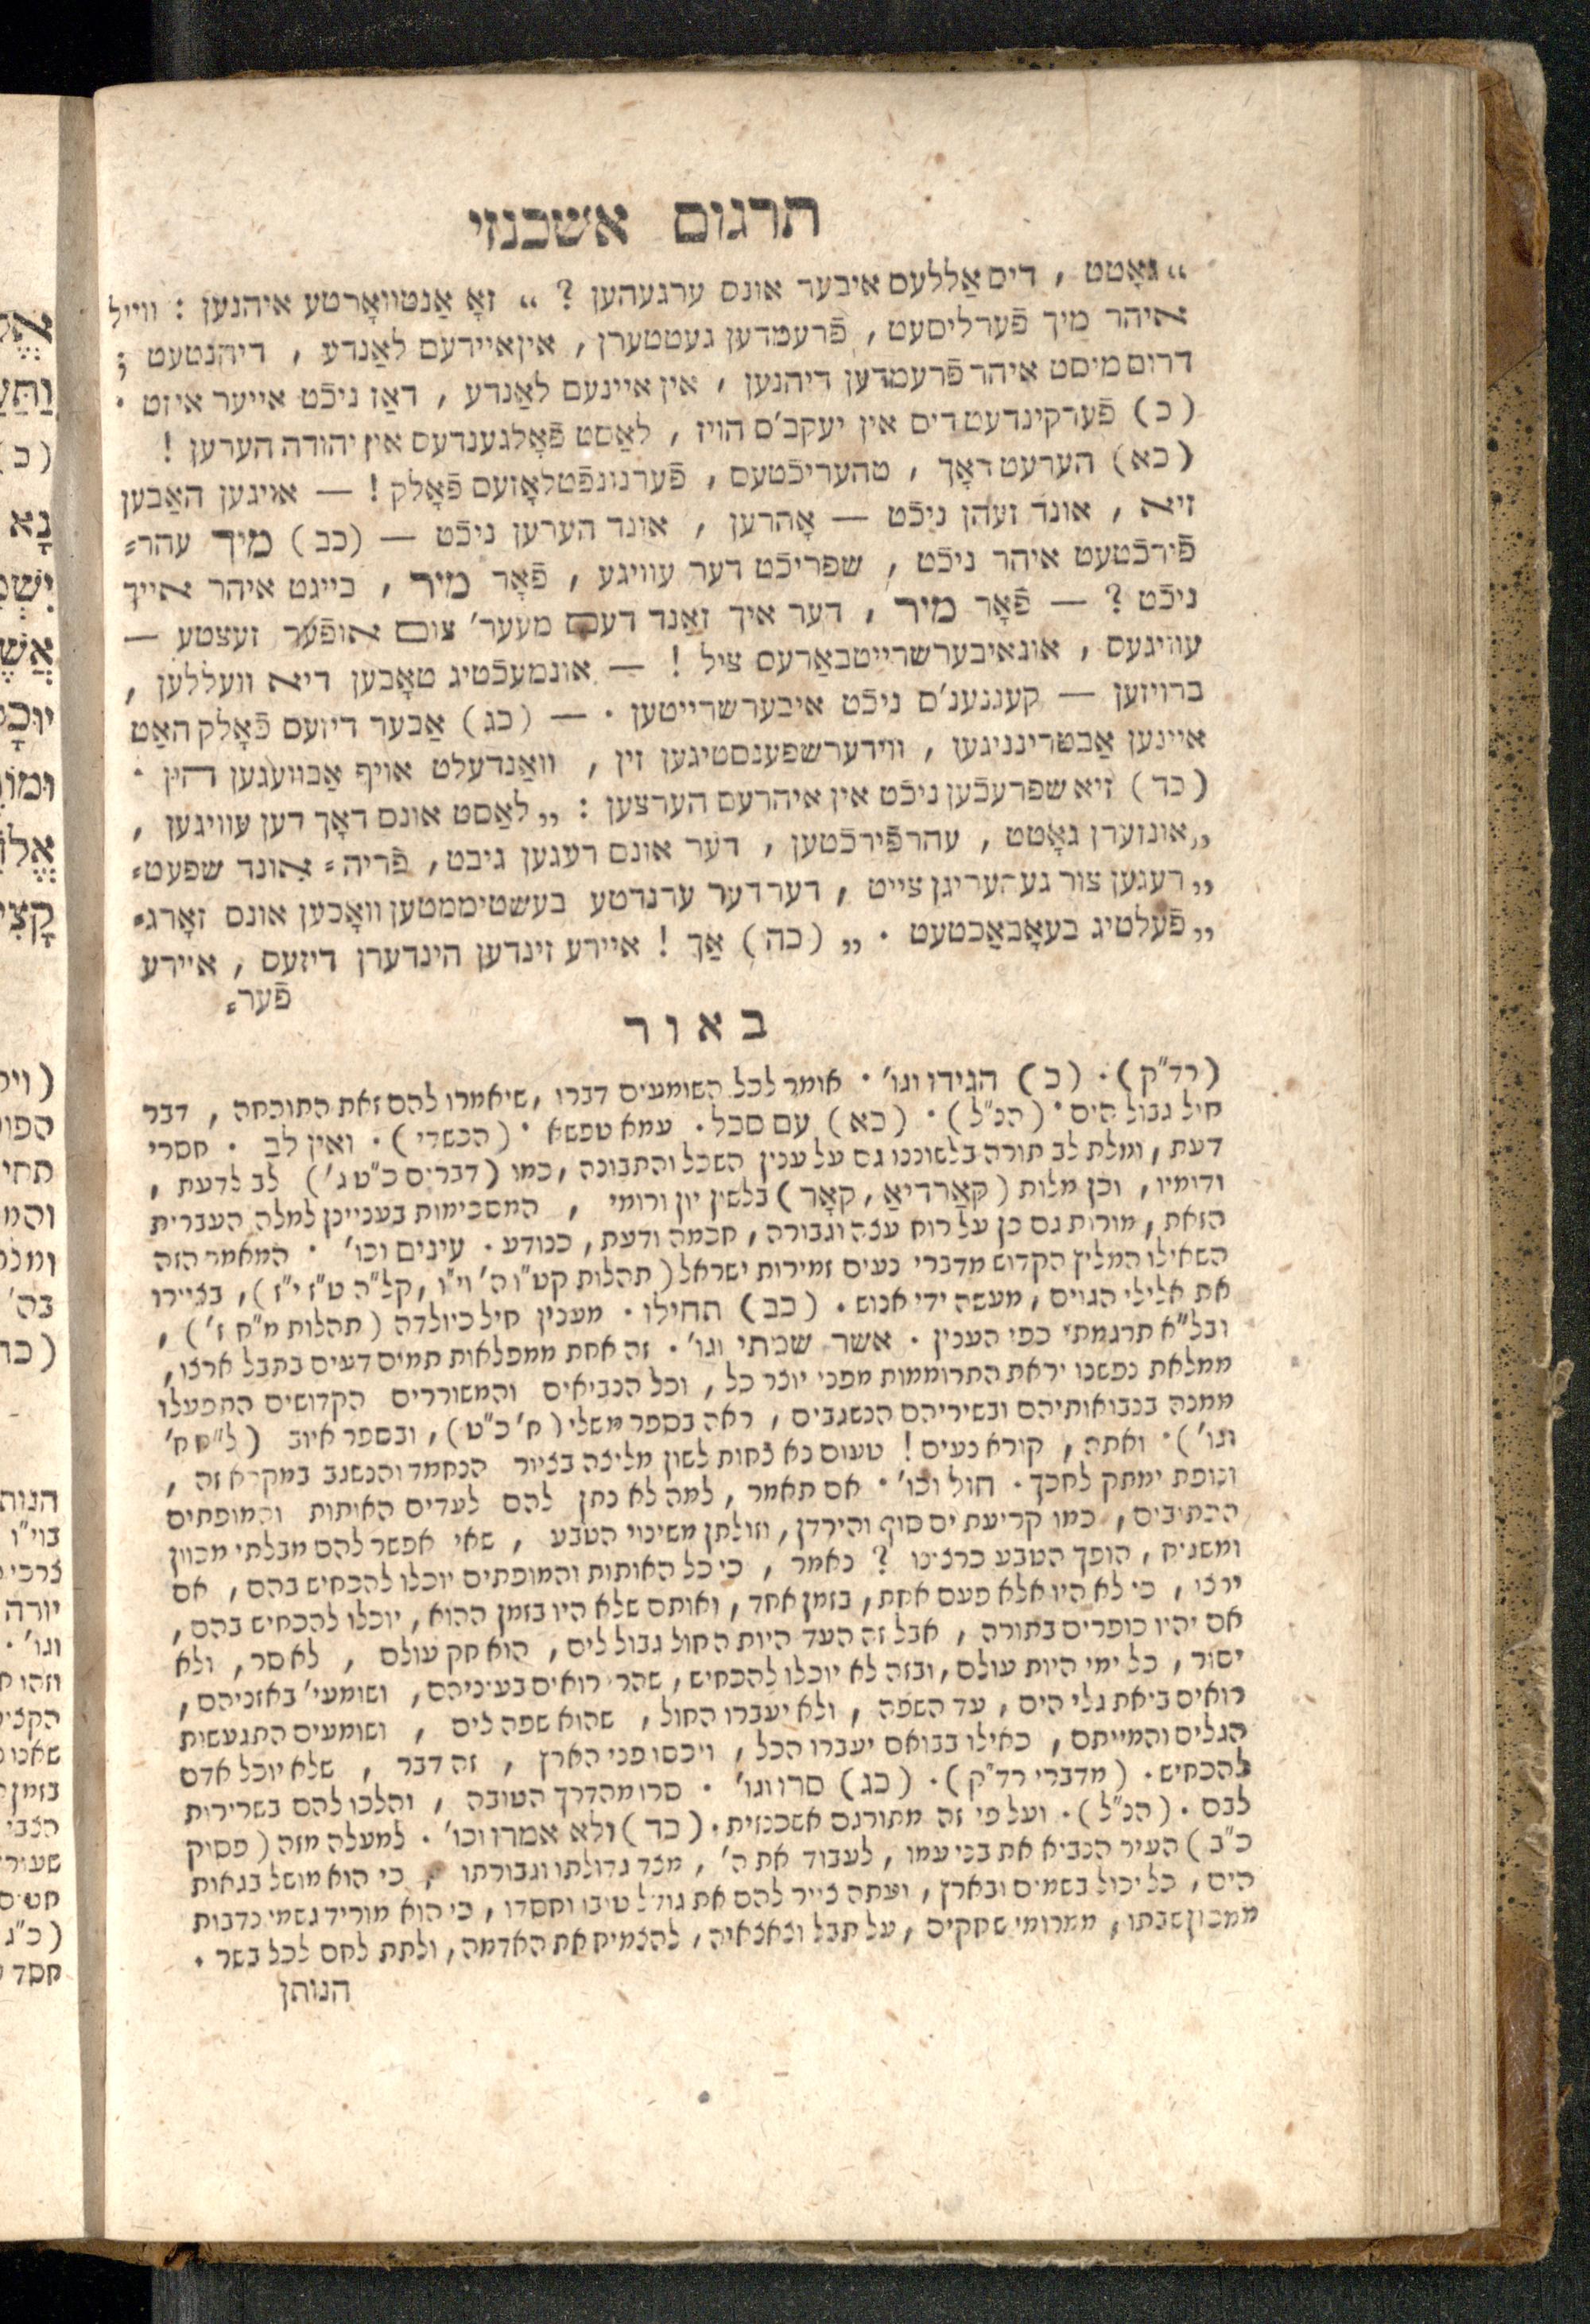 תרגום אשכנזי
„גאָטט , דיס אַללעס איבער אונס ערגעהען ? “ זאָ אַנטוואָרטע איהנען : ווייל
איהר מיך פֿערליסעט , פֿרעמדען געטטערן , אין אייירעם לאַנדע , דיהנטעט ;
דרום מיסט איהר פֿרעמדען דיהנען , אין איינעם לאַנדע , דאַז ניכֿט אייער איזט .
(כ) פֿערקינדעט דיס אין יעקב'ס הויז , לאַסט פֿאָלגענדעס אין יהודה הערען !
(כא) הערעט דאָך , טהעריכֿטעס , פֿערנונפֿטלאָזעס פֿאָלק ! — אויגען האַבען
זיא , אונד זעהן ניכֿט — אָהרען , אונד הערען ניכֿט — (כב) מיך עהר⸗
פֿירכֿטעט איהר ניכֿט , שפריכֿט דער עוויגע , פֿאָר מיר , בייגט איהר אייך
ניכֿט ? — פֿאָר מיר , דער איך זאַנד דעם מעער' צום אופֿער זעצטע —
עוויגעס , אונאיבערשרייטבאַרעס ציל ! — אונמעכֿטיג טאָבען דיא וועללען ,
ברויזען — קעננען'ס ניכֿט איבערשרייטען . — (כג) אַבער דיזעס פֿאָלק האַט
איינען אַבטריננינגען , ווידערשפענסטיגען זין , וואַנדעלט אויף אַבוועגען הין .
(כד) זיא שפרעכֿען ניכֿט אין איהרעם הערצען : „ לאַסט אונס דאָך דען עוויגען ,
„אונזערן גאָטט , עהרפֿירכֿטען , דער אונס רעגען גיבט, פֿריה⸗ אונד שפעט⸗
„ רעגען צור געהעריגן צייט , דער דער ערנדטע בעשטיממטען וואָכען אונס זאָרג⸗
„פֿעלטיג בעאָבאַכטעט . „ (כה) אַך ! איירע זינדען הינדערן דיזעס , איירע
פֿער⸗
באור
(רד"ק) . (כ) הגידו וגו' . אומר לכל השומעים דברו , שיאמרו להם זאת התוכחה , דבר
חיל גבול הים . (הנ"ל) . (כא) עם סכל . עמא טפשא . (הכשדי) . ואין לב . חסרי
דעת , ומלת לב תורה בלשוננו גם על ענין השכל והתבונה , כמו (דברים כ"ט ג') לב לדעת ,
ודומיו , וכן מלות (קאַרדיאַ , קאָר) בלשון יון ורומי , המסכימות בענינן למלה העברית
הזאת , מורות גם כן על רוח עצה וגבורה , חכמה ודעת , כנודע . עינים וכו' . המאמר הזה
השאילו המליץ הקדוש מדברי נעים זמירות ישראל (תהלות קט"ו ה' וי"ו , קל"ה ט"ז י"ז) , בציירו
את אלילי הגוים , מעשה ידי אנוש . (כב) תחילו . מענין חיל כיולדה (תהלות מ"ח ז') ,
ובל"א תרגמתי כפי הענין . אשר שמתי וגו' . זה אחת ממפלאות תמים דעים בתבל ארצו ,
ממלאת נפשנו יראת התרוממות מפני יוצר כל , וכל הנביאים והמשוררים הקדושים התפעלו
ממנה בנבואותיהם ובשיריהם הנשגבים , ראה בספר משלי (ח' כ"ט) , ובספר איוב (ל"ח ח'
וגו') . ואתה , קורא נעים ! טעום נא צחות לשון מליצה בציור הנחמד והנשגב במקרא זה ,
ונופת ימתק לחכך . חול וכו' . אם תאמר , למה לא נתן להם לעדים האותות והמופתים
הכתובים , כמו קריעת ים סוף והירדן , וזולתן משינוי הטבע , שאי אפשר להם מבלתי מכוון
ומשגיח , הופך הטבע כרצונו ? נאמר , כי כל האותות והמופתים יוכלו להכחיש בהם , אם
ירצו , כי לא היו אלא פעם אחת , בזמן אחד , ואותם שלא היו בזמן ההוא , יוכלו להכחיש בהם ,
אם יהיו כופרים בתורה , אבל זה העד היות החול גבול לים , הוא חק עולם , לא סר , ולא
יסור , כל ימי היות עולם , ובזה לא יוכלו להכחיש , שהרי רואים בעיניהם , ושומעי' באזניהם ,
רואים ביאת גלי הים , עד השפה , ולא יעברו החול , שהוא שפה לים , ושומעים התגעשות
הגלים והמייתם , כאילו בבואם יעברו הכל , ויכסו פני הארץ , זה דבר , שלא יוכל אדם
להכחיש . (מדברי רד"ק) . (כג) סרו וגו' . סרו מהדרך הטובה , והלכו להם בשרירות
לבם . (הנ"ל) . ועל פי זה מתורגם אשכנזית . (כד) ולא אמרו וכו' . למעלה מזה (פסוק
כ"ב) העיר הנביא את בני עמו , לעבוד את ה' , מצד גדולתו וגבורתו , כי הוא מושל בגאות
הים , כל יכול בשמים ובארץ , ועתה צייר להם את גודל טיבו וחסדו , כי הוא מוריד גשמי נדבות
ממכון שבתו , ממרומי שחקים , על תבל וצאצאיה , להצמיח את האדמה , ולתת לחם לכל בשר .
הנותן